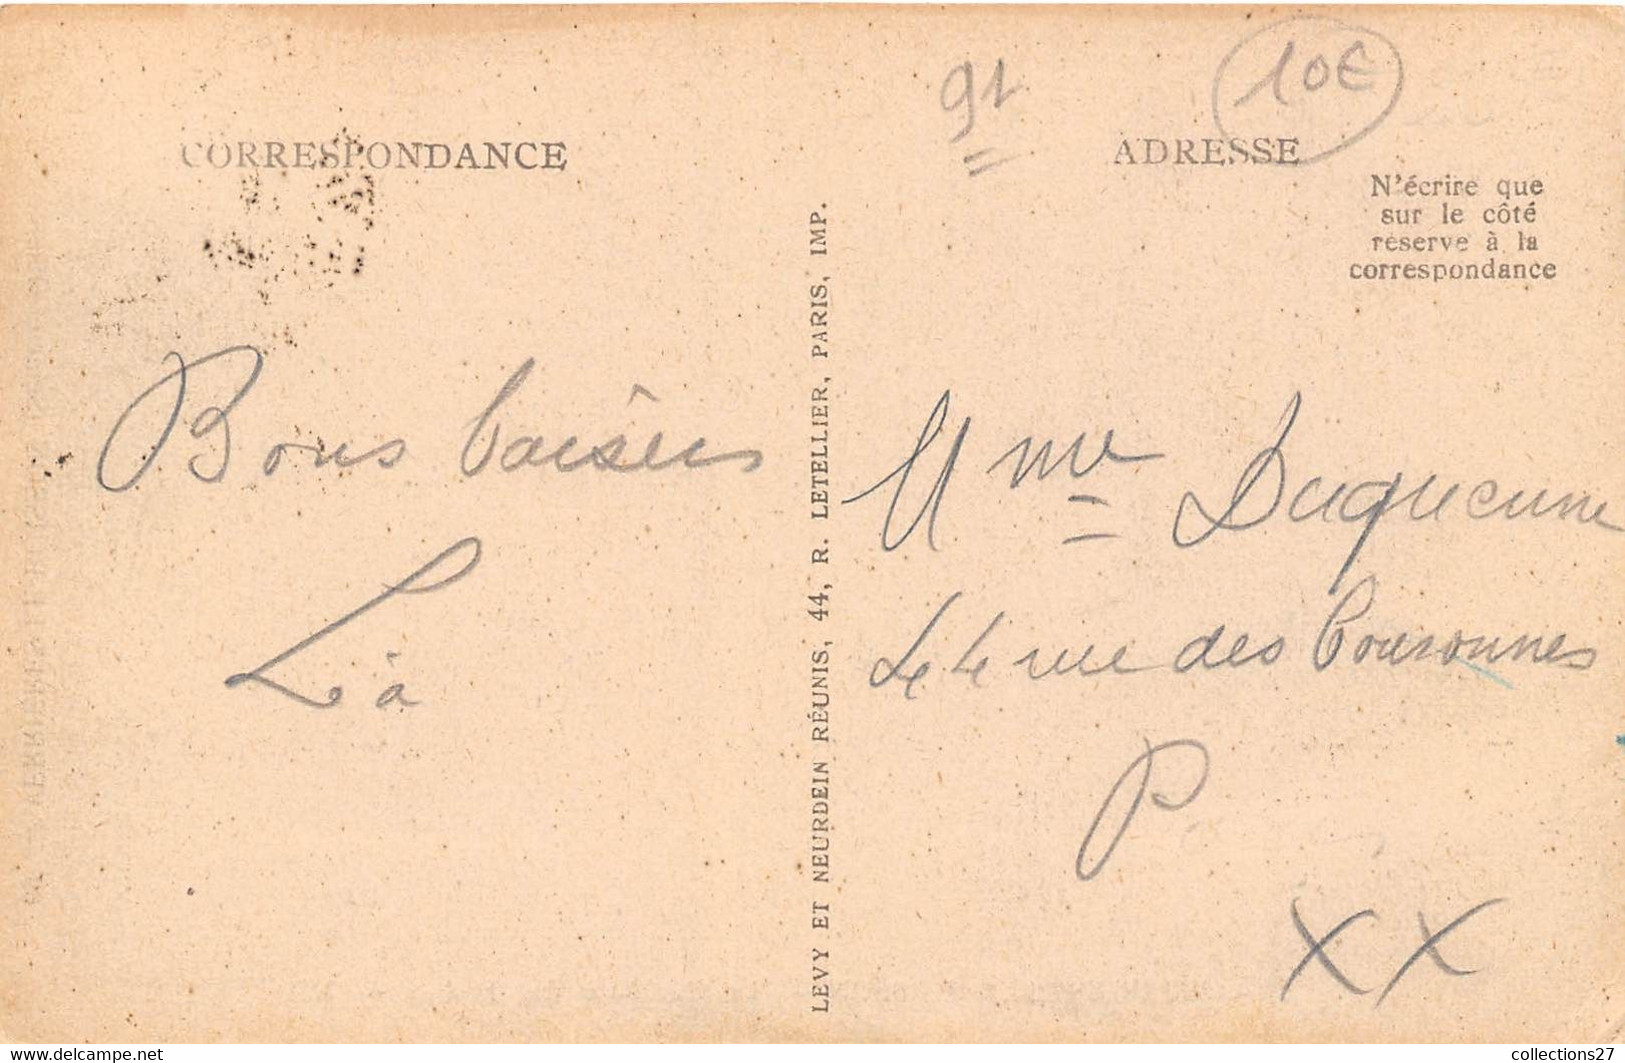 91
10€
CORRESPONDANCE
ADRESSE
N'écrire que
sur le côté
réservé à la
correspondance
Bons baisers
LEVY ET NEURDEIN RÉUNIS, 44, R. LETELLIER, PARIS, IMP.
Mme Duquenne
44 rue des Couronnes
P
XX
www.delcampe.net
collections27